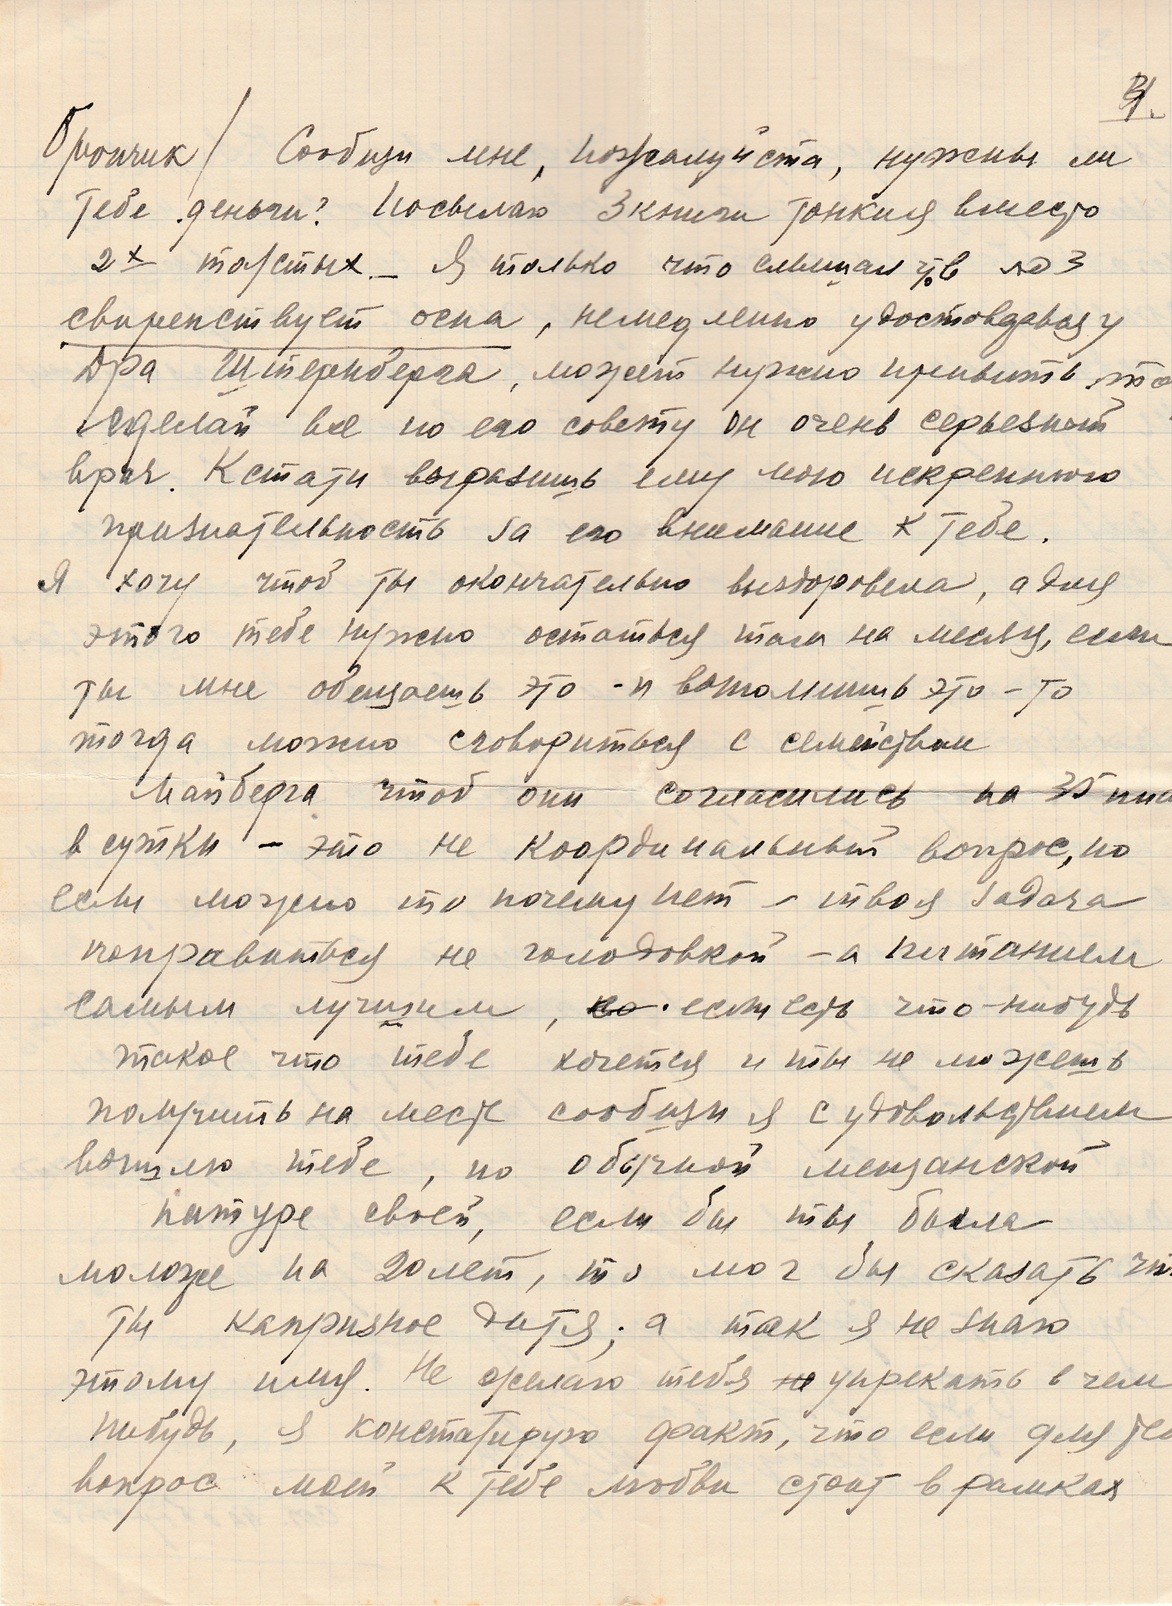 Брончик/ Сообщи мне, пожалуйста, нужны ли
тебе деньги? Посылаю 3 книги тонкия вместо
2х толстых — Я только что слышал что в
свирепствует оспа, немедленно у
Дра Штернберга, может нужно привить, то
сделай все по его совету он очень серьезный
врач. Кстати выразишь ему мою искреннюю
признательность за его внимание к тебе.
Я хочу чтоб ты окончательно выздоровела, а для
этого тебе нужно остаться там на месяц, если
ты мне обещаешь это - и выполнишь это - то
тогда можно сговориться с семейством
Майберга чтоб они согласились на 35
в сутки — это не координальный вопрос, но
если можно то почему нет — твоя задача
поправиться не голодовкой — а питанием
самым лучшим, но если есть что-нибудь
такое что тебе хочется и ты не можешь
получить на месте сообщи я с удовольствием
вышлю тебе, по обычной мещанской
натуре своей, если бы ты была
моложе на 20 лет, то мог бы сказать что
ты капризное дитя; а так я не знаю
этому имя. Не желаю тебя не упрекать в чем
нибудь, я констатирую факт, что если для
вопрос моей к тебе любви стоит в рамках